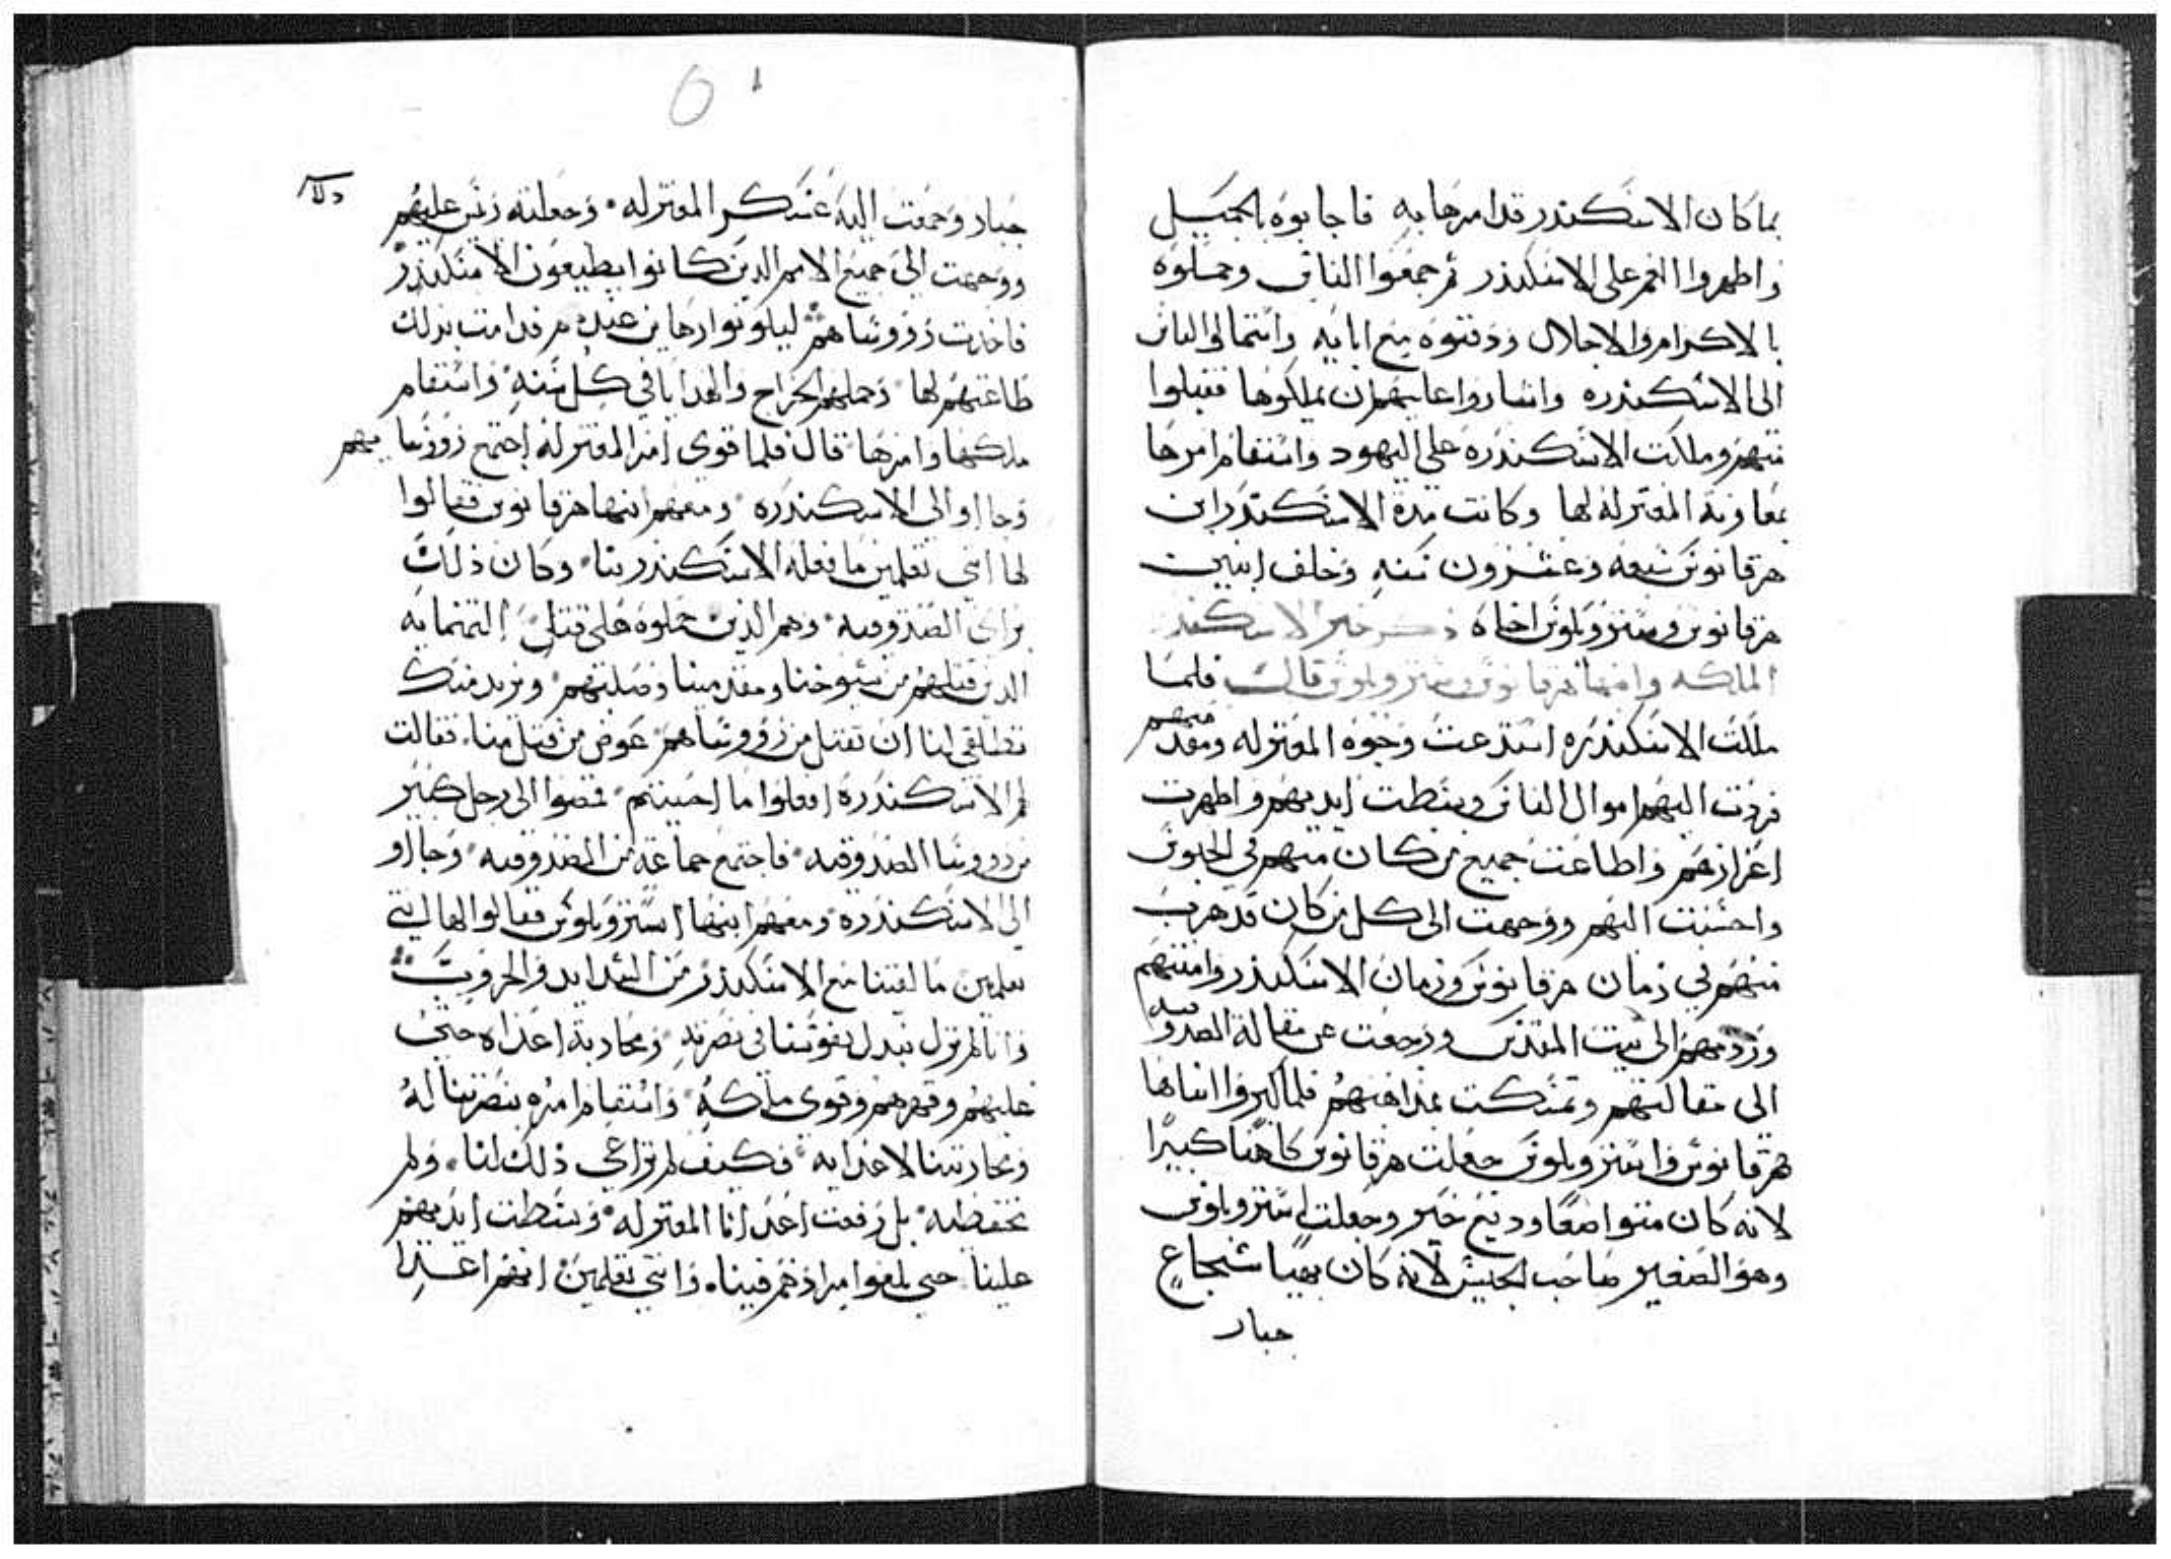 بما كان الاسكندر قد امرها به فاجابوه بالجميل
واظهروا الغم على الاسكندر ثم جمعوا الناس وحملوه
بالاكرام والاجلال ودفنوه مع ابايه وانتما لى الناس
الى الاسكندره واشاروا عليهم ان يملكوها فقبلوا
منهم وملكت الاسكندره على اليهود واستقام امرها
بمعاونة المعتزله لها وكانت مدة الاسكندر ابن
هرقانوس سبعه وعشرون سنه وخلف ابنين
هرقانوس وستروبلوس اخاه ذكر خبر الاسكندر
الملكه وابنها هرقانوس وسترزوبلوس قال فلما
ملكت الاسكندره استدعت وجوه المعتزله ومقدميهم
فردت اليهم اموال الناس وبسطت ايديهم واظهرت
اعزازهم واطاعت جميع من كان منهم في الحبوس
واحسنت اليهم ووجهت الى كل من كان قد هرب
منهم في زمان هرقانوس وزمان الاسكندر وامنتهم
وردتهم الى بيت المقدس ورجعت عن مقالة الصدوقيه
الى مقالتهم وتمسكت بمذاهبهم فلما كبروا ابناها
هرقانوس واسترزوبلوس جعلت هرقانوس كاهنا كبيرا
لانه كان متواضعا وديع خير وجعلت استرزوبلوس
وهو الصغير صاحب الجيش لانه كان بهيا شجاع
جبار
جبار وجمعت اليه عسكر المعتزله وجعلته ريس عليهم
ووجهت الى جميع الامم الذين كانوا يطيعون الاسكندر
فاخذت رؤوساهم ليكونوا رهاين عنده فدامت بذلك
طاعتهم لها وحملهم الخراج والهدايا في كل سنه واستقام
ملكها وامرها قال فلما قوى امر المعتزله اجتمع رؤوسا يهم
وجااوا الى الاسكندره ومعهم ابنها هرقانوس فقالوا
لها انتي تعلمين ما فعله الاسكندر بنا وكان ذلك
براي الصدوقيه وهم الذين حملوه على قتل الثمنمايه
الذين قتلهم من شيوخنا ومقدمينا وصلبهم ونريد منك
تطلقي لنا ان نقتل من رؤوساهم عوض من قتل منا فقالت
لهم الاسكندره افعلوا ما احببتم فمضوا الى رجل كبير
من رووسا الصدوقيه فاجتمع جماعة من الصدوقيه وجااو
الى الاسكندره ومعهم ابنها استرزوبلوس فقالوا لها انتي
تعلمين ما لقينا مع الاسكندر من الشدايد والحروب
وانا لم نزل نبدل نفوسنا في نصرته ومحاربة اعداه حتى
غلبهم وقهرهم وقوى ملكه واستقام امره بنصرتنا له
ومحاربتنا لاعدايه فكيف لم تراعي ذلك لنا ولم
تحفظيه بل رفعت اعدانا المعتزله وبسطت ايديهم
علينا حتى بلغوا مرادهم فينا وانتي تعلمين انهم اعدا